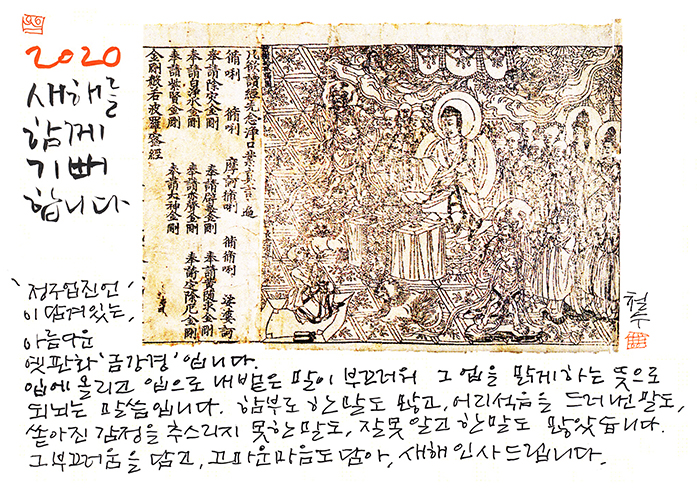 2020
새해를
함께
기뻐
합니다
凡欲讀經先念淨口業真言一遍
脩唎 脩唎 摩訶脩唎 脩脩唎 娑婆訶
奉請除灾金剛 奉請辟毒金剛 奉請黃隨求金剛
奉請白淨水金剛 奉請赤聲金剛 奉請定除厄金剛
奉請紫賢金剛 奉請大神金剛
金剛般若波羅蜜經
'정구업진언'
이 담겨있는,
아름다운
옛판화 '금강경'입니다.
입에 올리고 입으로 내뱉은 말이 부끄러워 그 업을 맑게하는 뜻으로
되뇌는 말씀입니다. 함부로 한말도 많고, 어리석음을 드러낸 말도,
쏟아진 감정을 추스리지 못한말도, 잘못 알고 한말도 많았습니다.
그 부끄러움을 담고, 고마운마음도 담아, 새해 인사드립니다.
철수